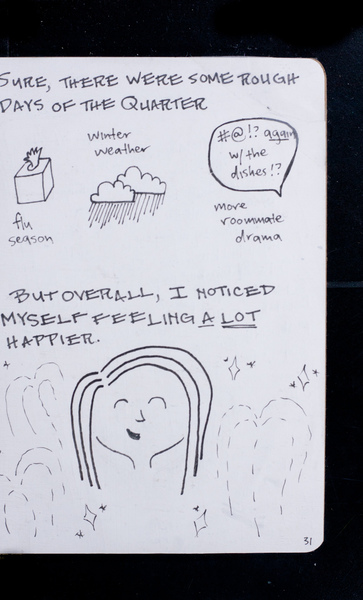 SURE, THERE WERE SOME ROUGH
DAYS OF THE QUARTER
winter
weather
#@!? again
w/the
dishes!?
flu
season
more
roommate
drama
BUT OVERALL, I NOTICED
MYSELF FEELING A LOT
HAPPIER.
31